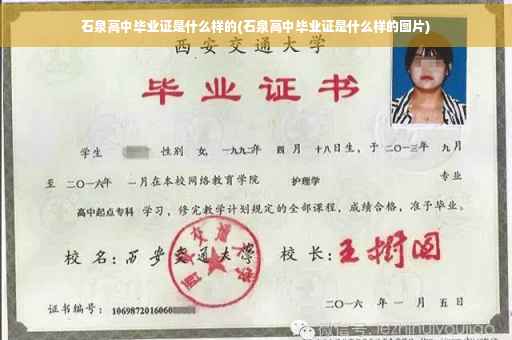 石泉高中毕业证是什么样的(石泉高中毕业证是什么样的图片)
西安交通大学
毕业证书
学生 性别 女, 一九九二年 四月 十八日生, 于二〇一三年 九月
至 二〇一六年 一月在本校网络教育学院 护理学 专业
高中起点专科 学习, 修完教学计划规定的全部课程, 成绩合格, 准予毕业。
校名: 西安交通大学 校长: 王树国
西安交通大学
证书编号: 1069872016060
二〇一六年 一月 五日
微信号: jezhihuiyoujiao